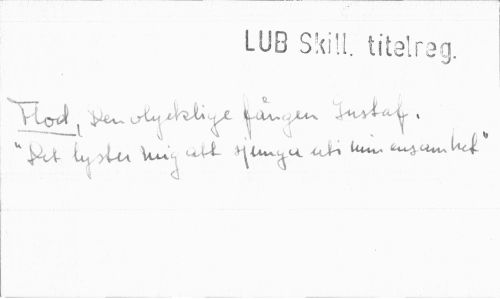 LUB Skill. titelreg.
Flod, Den olycklige fången Gustaf.
"Det lyster mig att sjunga uti min ensamhet"